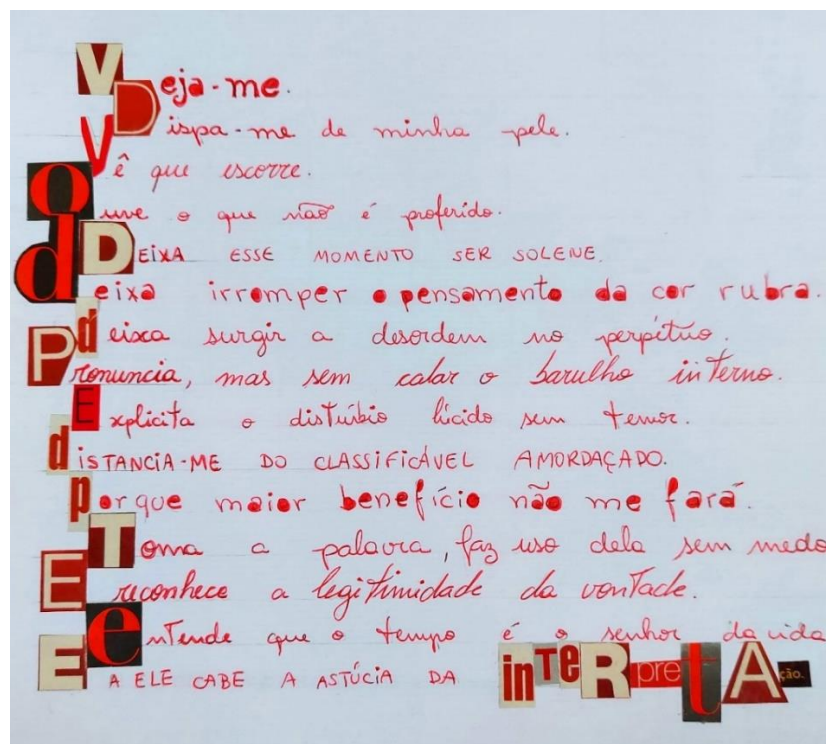 Veja-me.
Dispa-me de minha pele.
Vê que escorre.
Ouve o que não é proferido.
DEIXA ESSE MOMENTO SER SOLENE.
deixa irromper o pensamento da cor rubra.
deixa surgir a desordem no perpétuo.
Pronuncia, mas sem calar o barulho interno.
Explicita o distúrbio lúcido sem temor.
dISTANCIA-ME DO CLASSIFICÁVEL AMORDAÇADO.
porque maior benefício não me fará.
Toma a palavra, faz uso dela sem medo
E reconhece a legitimidade da vontade.
entende que o tempo é o senhor da vida
E A ELE CABE A ASTÚCIA DA inTeRpretAção.